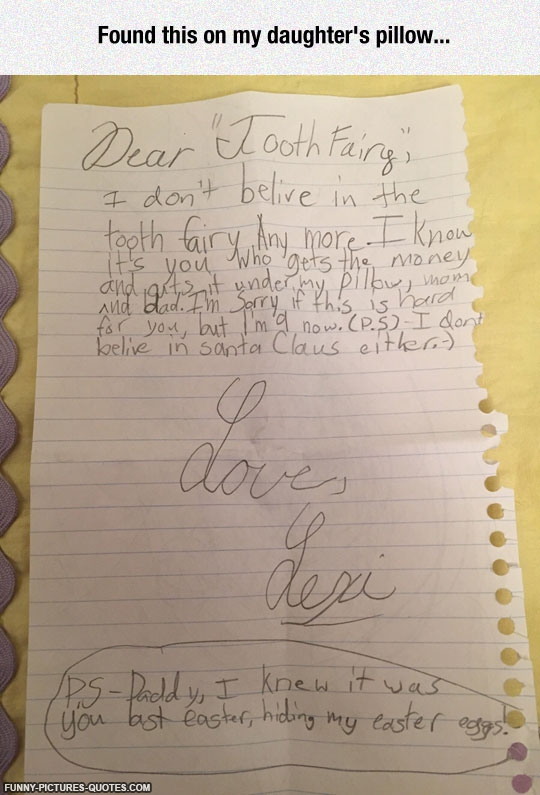 Found this on my daughter's pillow...
Dear "Tooth Fairy",
I don't belive in the
tooth fairy Any more. I know
it's you who gets the money
and puts it under my pillow, mom
And dad. I'm sorry if this is hard
for you, but I'm 9 now. (P.S)-I dont
belive in santa Claus either.-)
Love,
Lexi
P.S-Daddy, I knew it was
you last easter, hiding my easter eggs!
FUNNY-PICTURES-QUOTES.COM